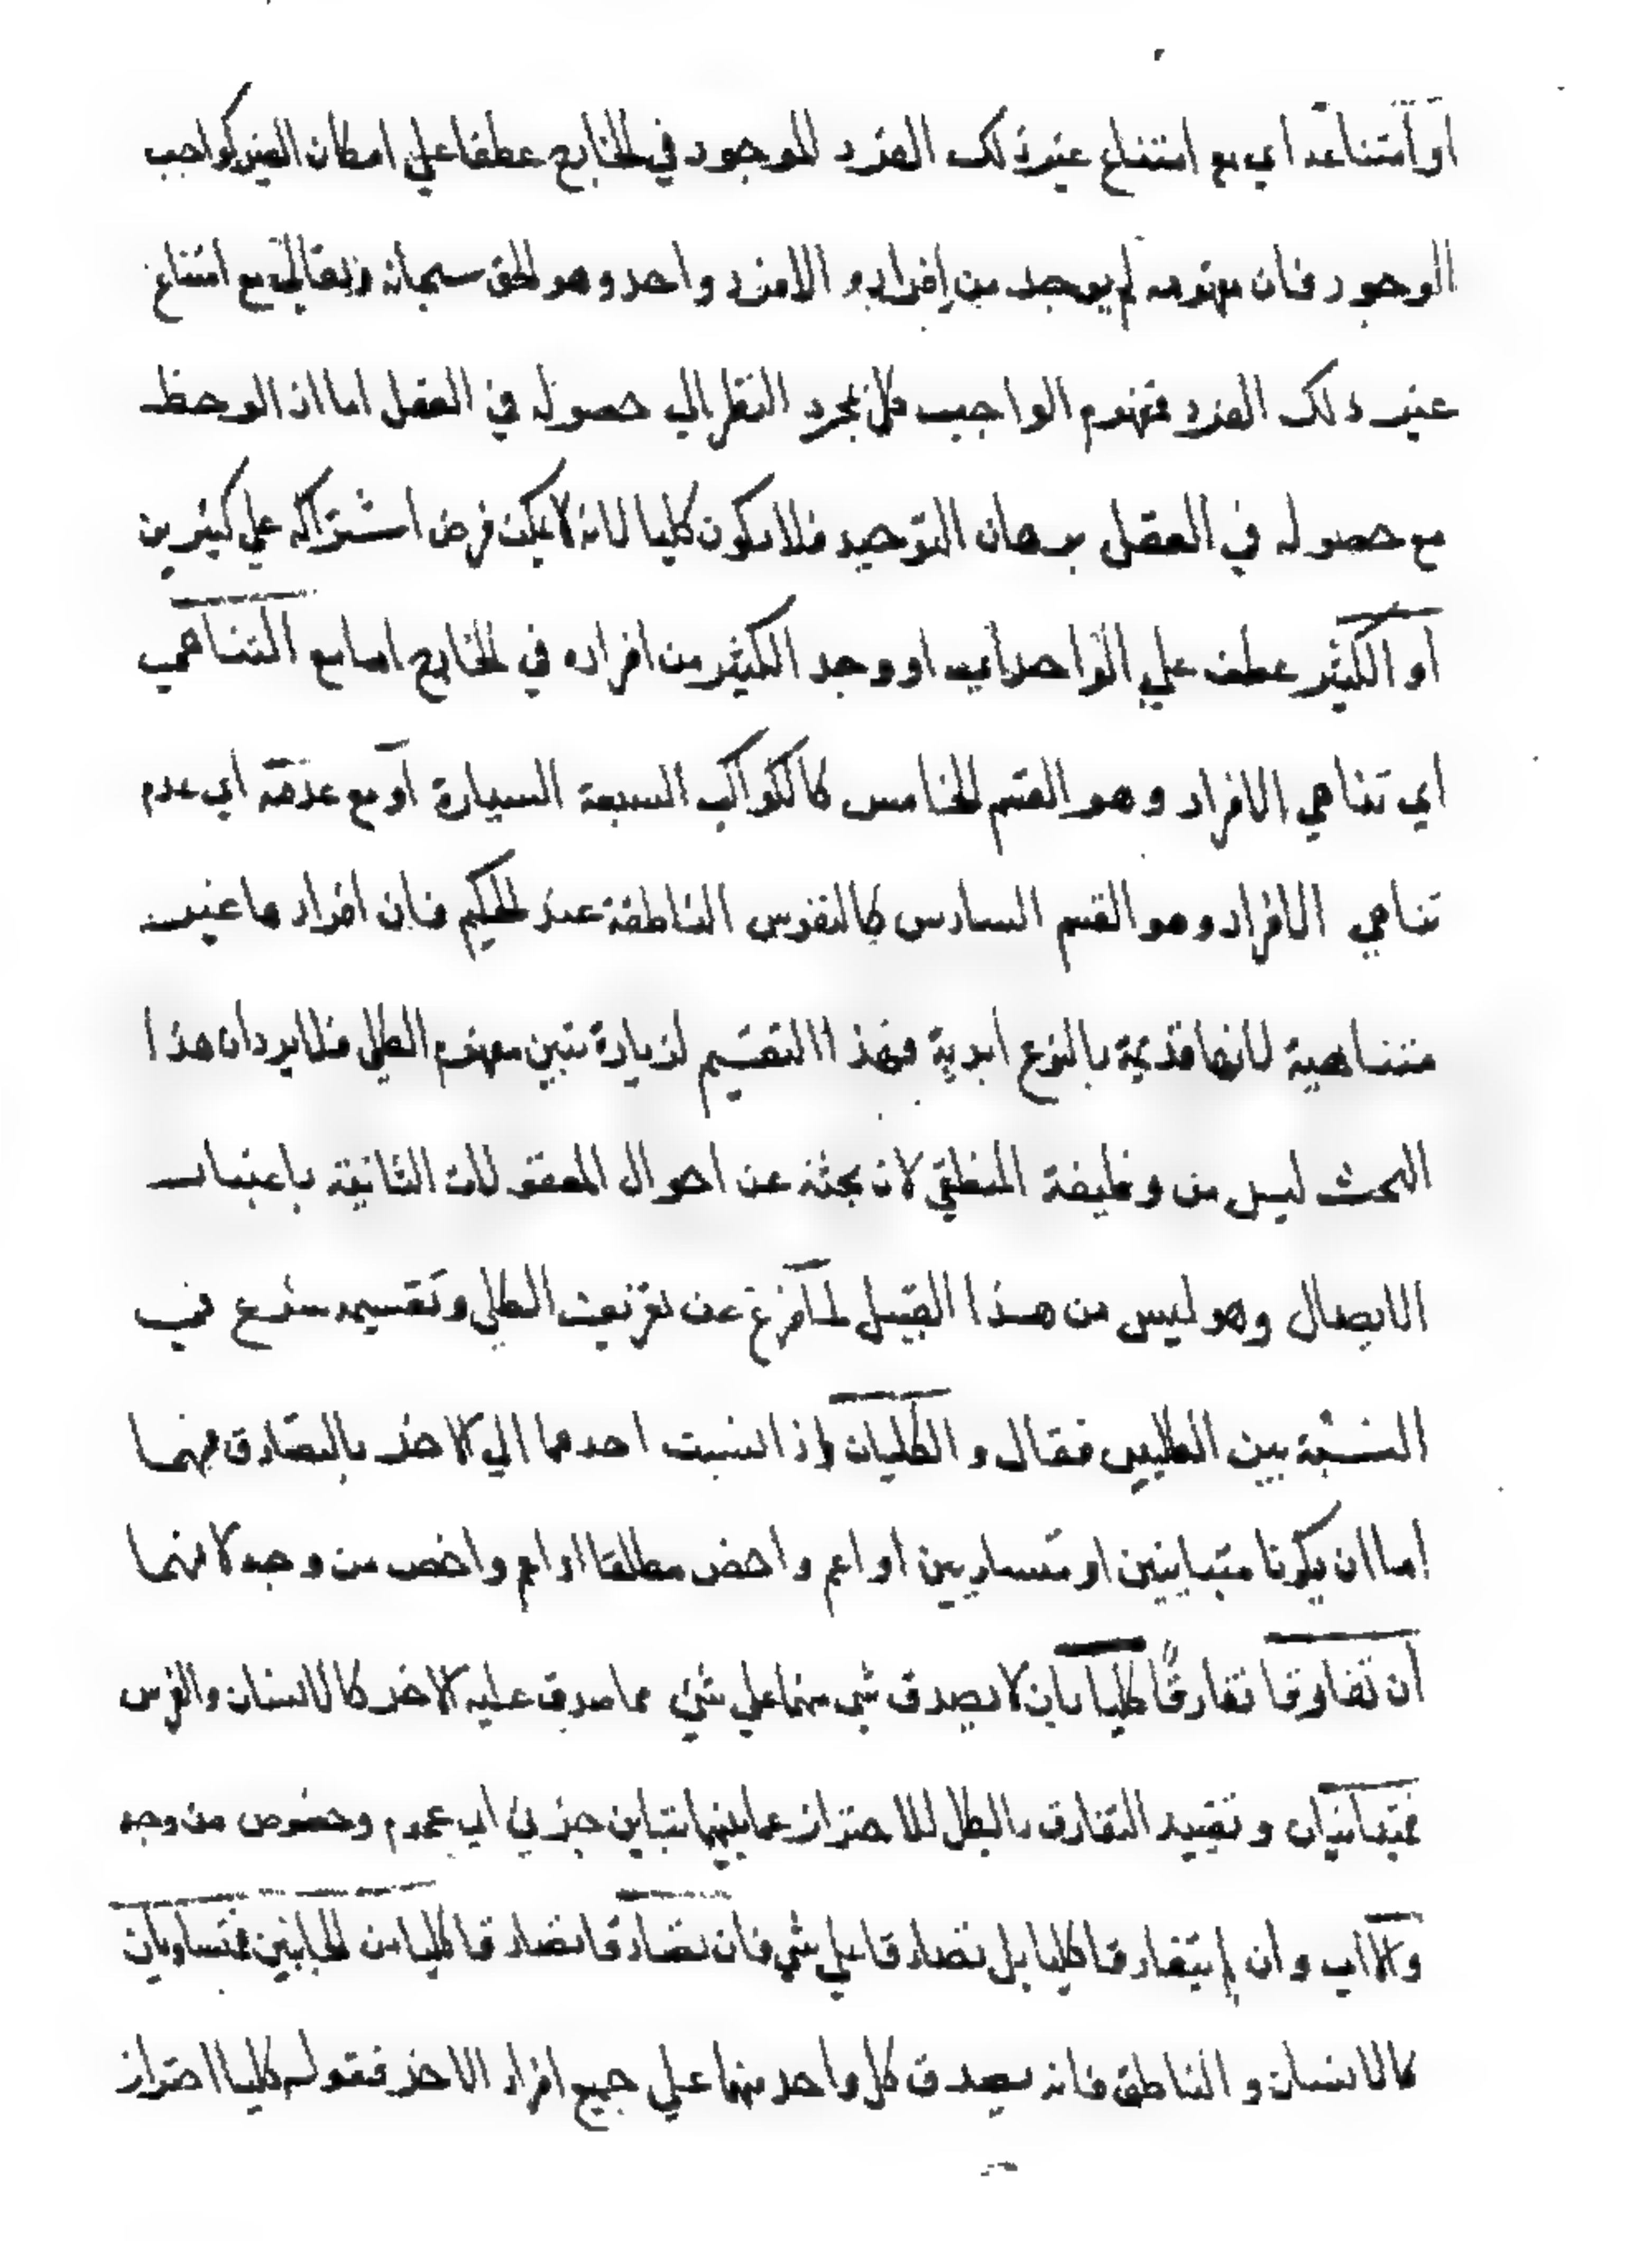 او امتناعه اي مع امتناع غير ذلك الفرد الموجود في الخارج عطفا علي امكان الغير كواجب
الوجود فان مفهومه لم يوجد من افراده الا فرد واحد وهو الحق سبحانه وتعالي مع امتناع
غير ذلك الفرد فمفهوم الواجب كلي بمجرد النظر الي حصوله في العقل اما اذا لوحظ
مع حصوله في العقل برهان التوحيد فلا يكون كليا لانه لا يمكن فرض اشتراكه علي كثيرين
او الكثير عطف علي الواحد اي او وجد الكثير من افراده في الخارج اما مع التناهي
اي تناهي الافراد وهو القسم الخامس كالكواكب السبعة السيارة او مع عدمه اي عدم
تناهي الافراد وهو القسم السادس كالنفوس الناطقة عند الحكيم فان افرادها غير
متناهية لانها قديمة بالنوع ابدية فهذا التقسيم لزيادة تبين مفهوم الكلي فلا يرد ان هذا
البحث ليس من وظيفة المنطقي لان بحثه عن احوال المعقولات الثانية باعتبار
الايصال وهو ليس من هذا القبيل لما فرغ عن تعريف الكلي وتقسيمه شرع في
النسبة بين الكليين فقال و الكليان اذا انسبت احدهما الي الاخر بالتصادق فهما
اما ان يكونا متباينين او متساويين او اعم واخص مطلقا او اعم واخص من وجه لانهما
ان تفارقا تفارقا كليا بان لا يصدق شي منهما علي شئ مما صدق عليه الاخر كالانسان والفرس
فمتباينان و تقييد التفارق بالكلي للاحتراز عما بينهما تباين جزئي اي عموم وخصوص من وجه
والا اي وان لم يتفارقا كليا بل تصادقا علي شي فان تصادقا تصادقا كليا من الجانبين فمتساويان
كالانسان و الناطق فانه يصدق كل واحد منهما علي جميع افراد الاخر فقوله كليا احتراز